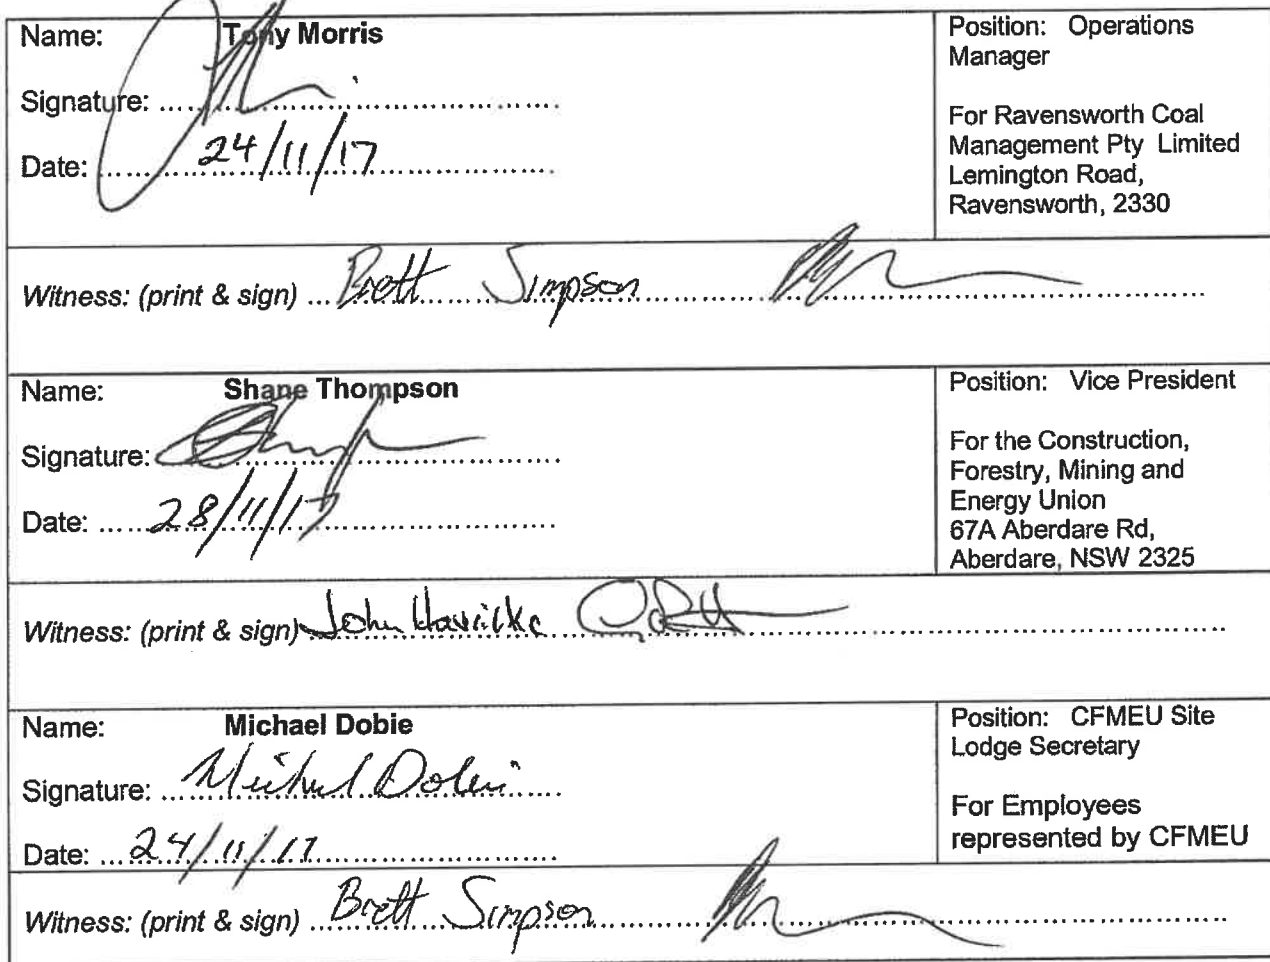 Name: Tony Morris
Signature: ........................................
Date: ...... 24/11/17 ........................
Position: Operations
Manager
For Ravensworth Coal
Management Pty Limited
Lemington Road,
Ravensworth, 2330
Witness: (print & sign) ... Brett Simpson
Name: Shane Thompson
Signature: ........................................
Date: ...... 28/11/17 ........................
Position: Vice President
For the Construction,
Forestry, Mining and
Energy Union
67A Aberdare Rd,
Aberdare, NSW 2325
Witness: (print & sign) John
Name: Michael Dobie
Signature: ... Michael Dobie ......
Date: ... 24/11/17 ........................
Position: CFMEU Site
Lodge Secretary
For Employees
represented by CFMEU
Witness: (print & sign) ... Brett Simpson